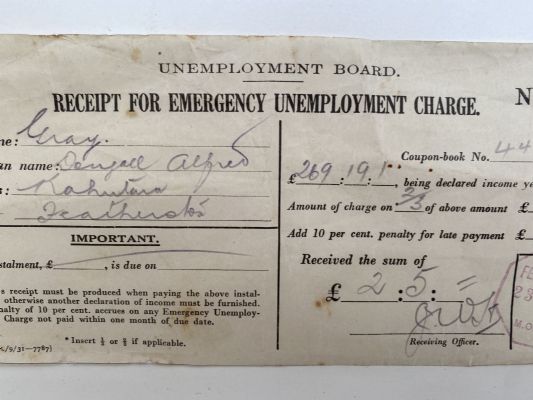 UNEMPLOYMENT BOARD.
RECEIPT FOR EMERGENCY UNEMPLOYMENT CHARGE. N
ne: Gray.
an name: Alfred
s: Kahutara
Featherston
IMPORTANT.
stalment, £ , is due on
s receipt must be produced when paying the above instal-
otherwise another declaration of income must be furnished.
nalty of 10 per cent. accrues on any Emergency Unemploy-
Charge not paid within one month of due date.
* Insert ⅓ or ⅔ if applicable.
/9/31—7787)
Coupon-book No. 44
£269 : 19 : 1, being declared income ye
Amount of charge on ⅔ of above amount £
Add 10 per cent. penalty for late payment £
Received the sum of
£ 2 : 5 : =
Receiving Officer.
FE
23
M.O